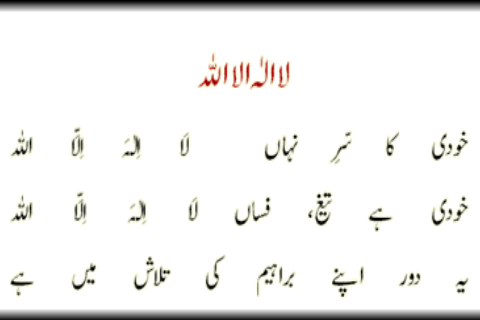 لا الٰہ الا اللہ
خودی کا سّرِ نہاں لَا اِلٰہَ اِلّا اللہ
خودی ہے تیغ، فساں لَا اِلٰہَ اِلّا اللہ
یہ دور اپنے براہیم کی تلاش میں ہے